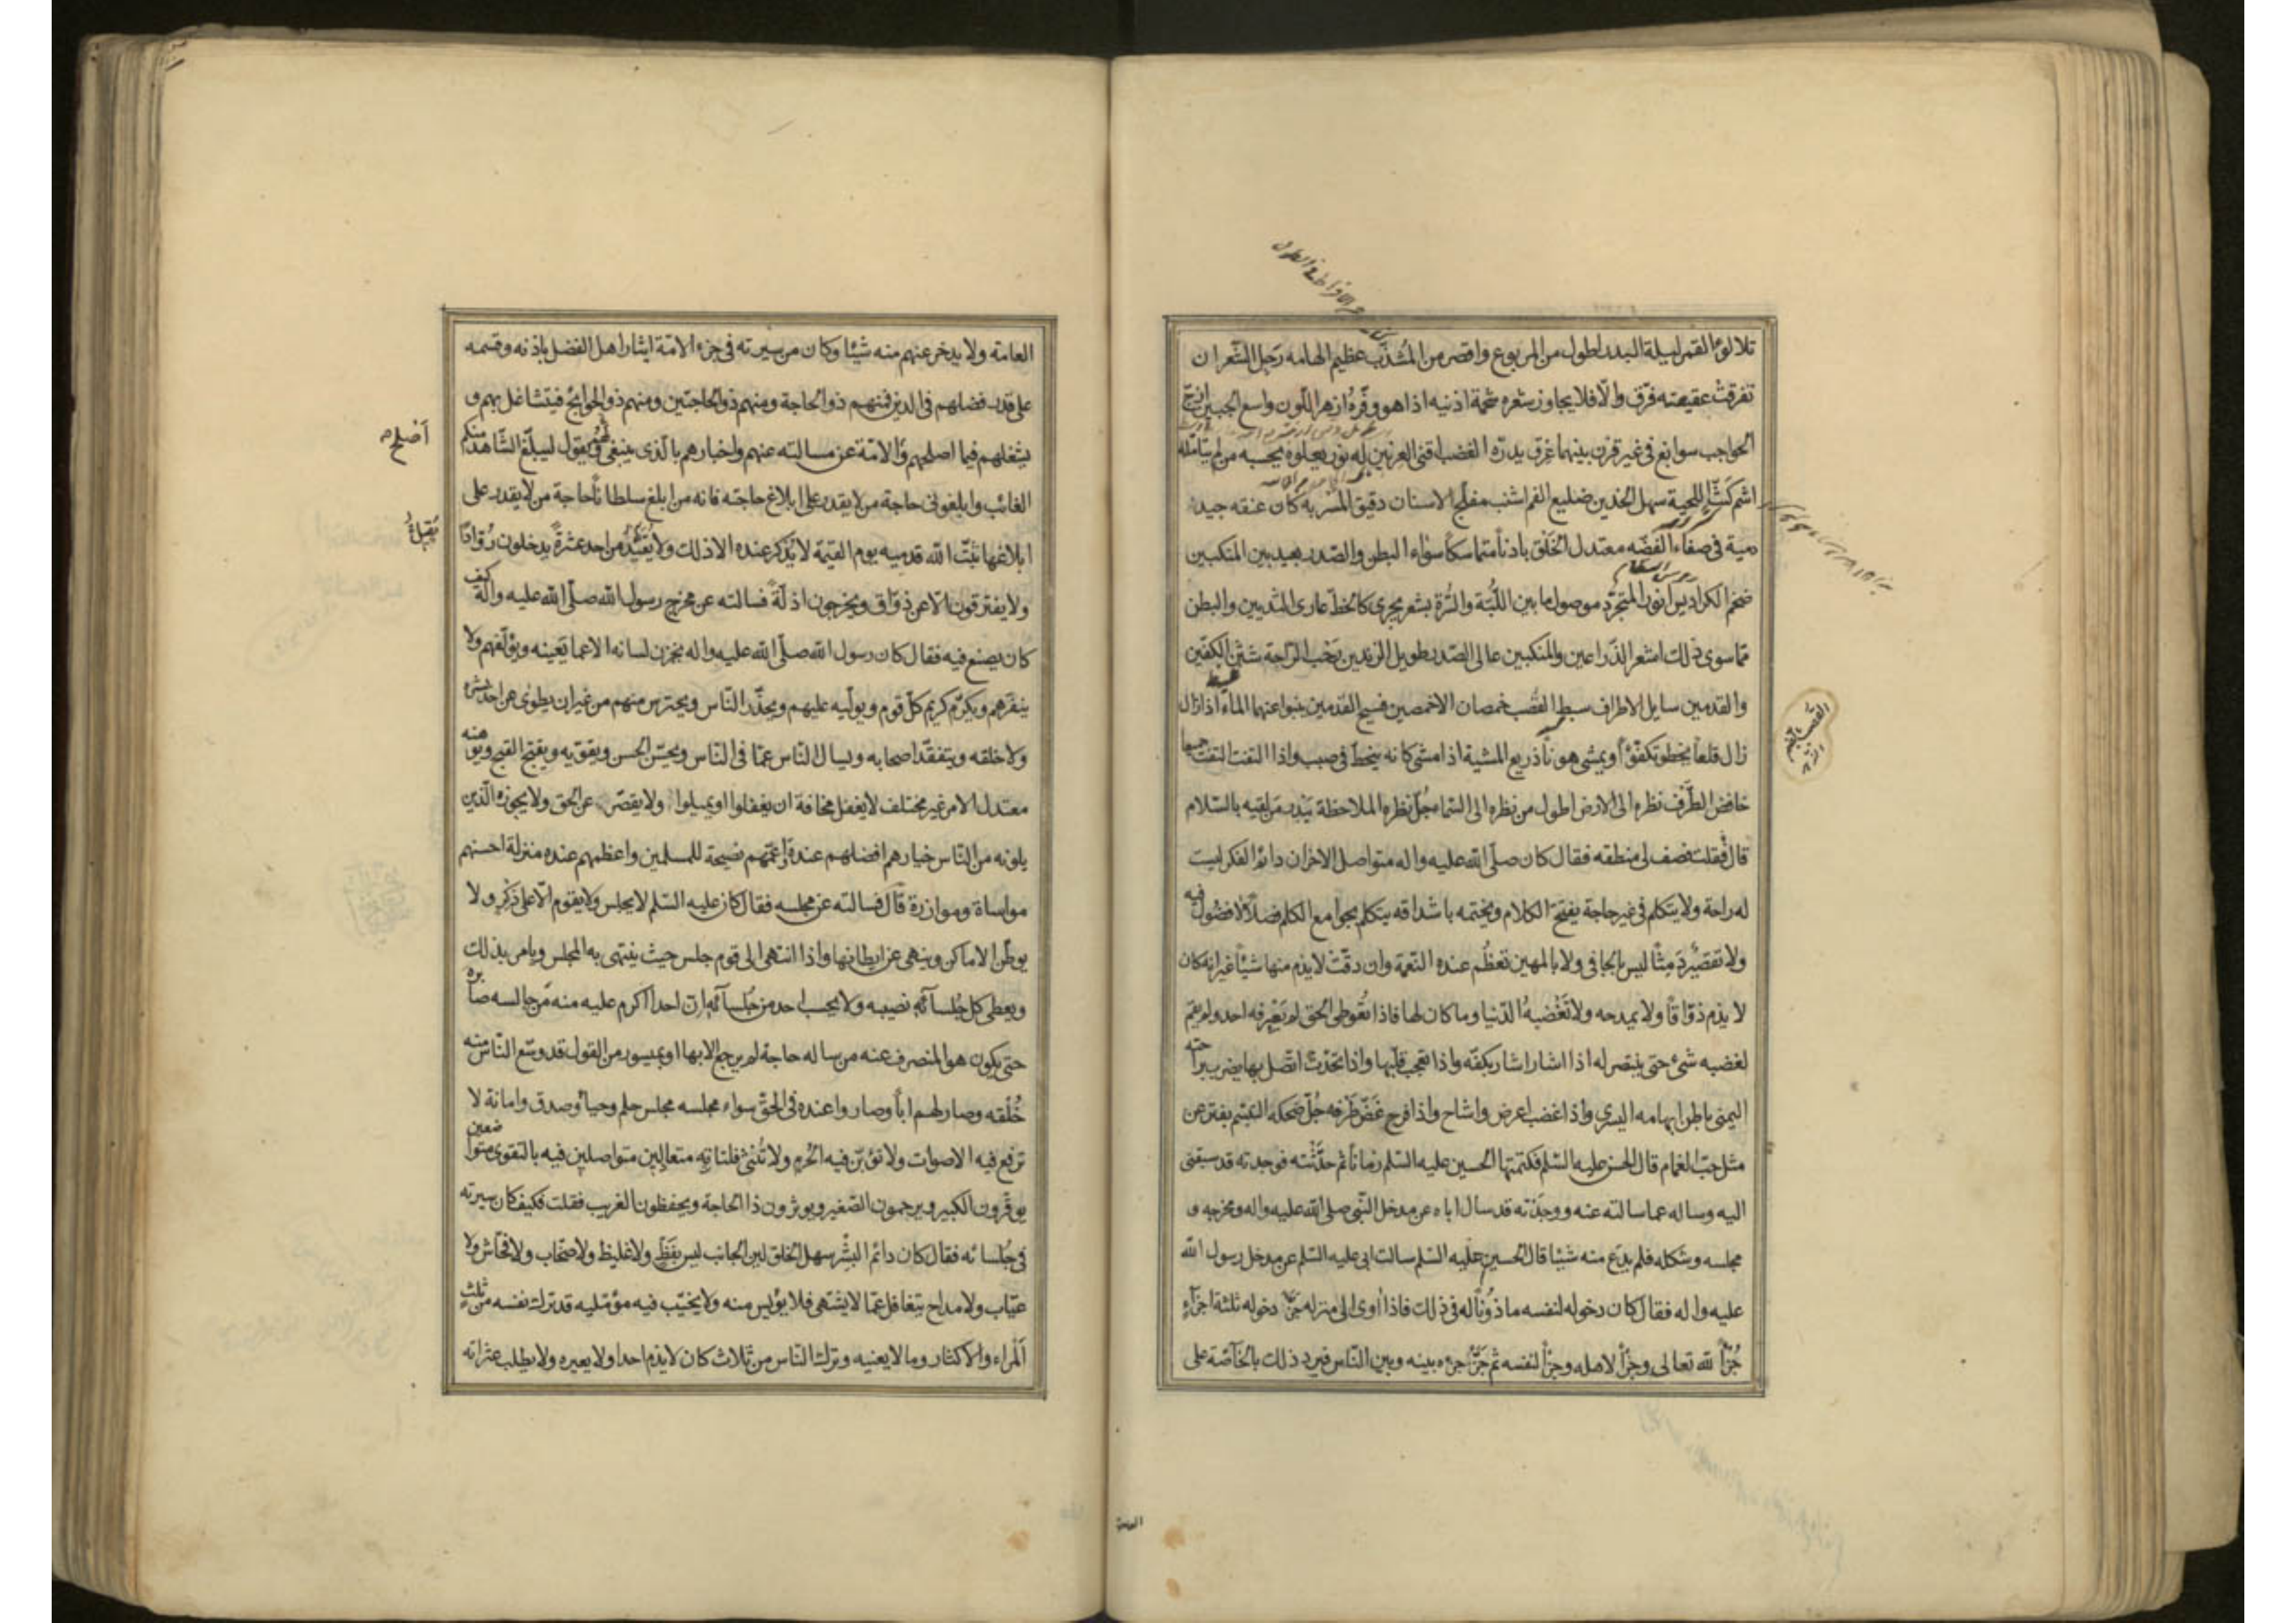 تلالؤ القمر ليلة البدر اطول من المربوع واقصر من المُشذّب عظيم الهامه رَجِل الشّعر ان
تفرقتْ عقيصته فرّق والّا فلا يجاوز شعره شحمة اذنيه اذا هو وفّرهُ ازهر اللّون واسع الجبين ازجّ
الحواجب سوابغ فى غير قرن بينهما عِرق يدرّه الغضب اقنى العرنين له نور يعلوه يحسبه من لم يتامّله
اشم كَثّ اللحية سهل الخدين ضليع الفم اشنب مفلّج الاسنان دقيق المَسْربه كان عنقه جيد
دمية فى صفاء الفضّه معتدل الخَلْق بادناً متماسكاً سواء البطن والصّدر بعيد بين المنكبين
ضخم الكراديس انور المتجرّد موصول ما بين اللّبّة والسُّرة بشعر يجرى كالخطّ عارى الثديين والبطن
ممّا سوى ذلك اشعر الذّراعين والمنكبين عالى الصّدر طويل الزندين رَحْب الرّاحة شثْن الكفّين
والقدمين سايل الاطراف سبط القصب خمصان الاخمصين فسيح القدمين ينبوا عنهما الماء اذا زال
زال قلعاً يخطو تكفّؤاً ويمشى هوناً ذريع المشية اذا مشى كانه ينحطّ فى صبب واذا التفت التفت جميعا
خافض الطَّرْف نظره الى الارض اطول من نظره الى السّما جُلّ نظره الملاحظة يَبْدر من لقيه بالسّلام
قال فقلت فصف لى منطقه فقال كان صلّى الله عليه واله متواصل الاحزان دائم الفكر ليست
له راحة ولا يتكلم فى غير حاجة يفتتح الكلام ويختمه باشداقه يتكلم بجوامع الكلم فصلاً لا فضول فيه
ولا تقصير دَمِثًا ليس بالجافى ولا بالمهين تعظُم عنده النّعمة وان دقّت لا يذم منها شيئاً غير انه كان
لا يذم ذوّاقاً ولا يمدحه ولا تُغْضبهُ الدّنيا وما كان لها فاذا تُعُوطى الحق لم يَعْرفه احد ولم يقم
لغضبه شئ حتى ينتصر له اذا اشار اشار بكفّه واذا تعجب قلّبها واذا تحدّث اتّصل بها يضرب براحته
اليمنى باطن ابهامه اليسرى واذا غضب اعرض واشاح واذا فرح غَضّ طَرْفه جُلّ ضحكه التبسّم يفتر عن
مثل حبّ الغمام قال الحسن عليه السّلم فكتمتها الحسين عليه السّلم زماناً ثم حدّثته فوجدته قد سبقنى
اليه وساله عما سالته عنه ووجدته قد سال اباه عن مدخل النّبى صلى الله عليه واله ومخرجه و
مجلسه وشكله فلم يدع منه شيئا قال الحسين عليه السّلم سالت ابى عليه السّلم عن مدخل رسول الله
عليه واله فقال كان دخوله لنفسه ماذوناً له فى ذلك فاذا اوى الى منزله جزّا دخوله ثلثة اجزاء
جُزْأً لله تعالى وجزأً لاهله وجزأً لنفسه ثم جَزّأَ جزءه بينه وبين النّاس فيرد ذلك بالخاصّة على
القصب
العامة
العامّة ولا يدخر عنهم منه شيئا وكان من سيرته فى جزء الامّة ايثار اهل الفضل باذنه وقسمه
على قدر فضلهم فى الدين فمنهم ذو الحاجة ومنهم ذو الحاجتين ومنهم ذو الحوايج فيتشاغل بهم و
يشغلهم فيما اصلحهم والامّة عن مسالته عنهم واخبارهم بالّذى ينبغى لهم ويقول ليبلّغ الشّاهد منكم
الغائب وابلغونى حاجة من لا يقدر على ابلاغ حاجته فانه من ابلغ سلطاناً حاجة من لا يقدر على
ابلاغها ثبّت الله قدميه يوم القيمة لا يُذكر عنده الا ذلك ولا يُقَيّدُ من احد عثرةً يدخلون رُوّادًا
ولا يفترقون الّا عن ذوّاق ويخرجون اذلّةً فسالته عن مخرج رسول الله صلّى الله عليه واله كيف
كان يصنع فيه فقال كان رسول الله صلّى الله عليه واله يخزن لسانه الا عما يَعينه ويؤلّفهم ولا
ينفّرهم ويكرّم كريم كلّ قوم ويولّيه عليهم ويحذّر النّاس ويحترس منهم من غير ان يطوى عن احد بشره
ولا خلقه ويتفقّد اصحابه ويسال النّاس عمّا فى النّاس ويحسّن الحسن ويقوّيه ويقبّح القبيح ويوهنه
معتدل الامر غير مختلف لا يغفل مخافة ان يغفلوا او يميلوا ولا يقصّر عن الحق ولا يجوزه الّذين
يلونه من النّاس خيارهم افضلهم عنده واعمّهم نصيحة للمسلمين واعظمهم عنده منزلة احسنهم
مواساة وموازرة قال فسالته عن مجلسه فقال كان عليه السّلم لا يجلس ولا يقوم الّا على ذِكْرٍ ولا
يوطّن الاماكن وينهى عن ايطانها واذا انتهى الى قوم جلس حيث ينتهى به المجلس ويامر بذلك
ويعطى كل جُلسآئه نصيبه ولا يحسب احد من جُلسآئه ان احدا اكرم عليه منه مَن جالسه صابره
حتى يكون هو المنصرف عنه من ساله حاجة لم يرجع الا بها او بميسور من القول قد وسّع النّاس منه
خُلُقه وصار لهم اباً وصاروا عنده فى الحقّ سواء مجلسه مجلس حلم وحياء وصدق وامانة لا
ترفع فيه الاصوات ولا تؤبّن فيه الحُرم ولا تُنثى فلتاته متعالين متواصلين فيه بالتقوى متواضعين
يوقّرون الكبير ويرحمون الصّغير ويوثرون ذا الحاجة ويحفظون الغريب فقلت فكيف كان سيرته
فى جُلسائه فقال كان دائم البِشْر سهل الخلق لين الجانب ليس بفَظّ ولا غليظ ولا صخّاب ولا فحّاش ولا
عيّاب ولا مداح يتغافل عمّا لا يشتهى فلا يؤيس منه ولا يخيّب فيه مؤمّليه قد ترك نفسه من ثلث
اَلْمراء والاكثار وما لا يعنيه وترك النّاس من ثلاث كان لا يذم احدا ولا يعيره ولا يطلب عثراته
اَصْلح